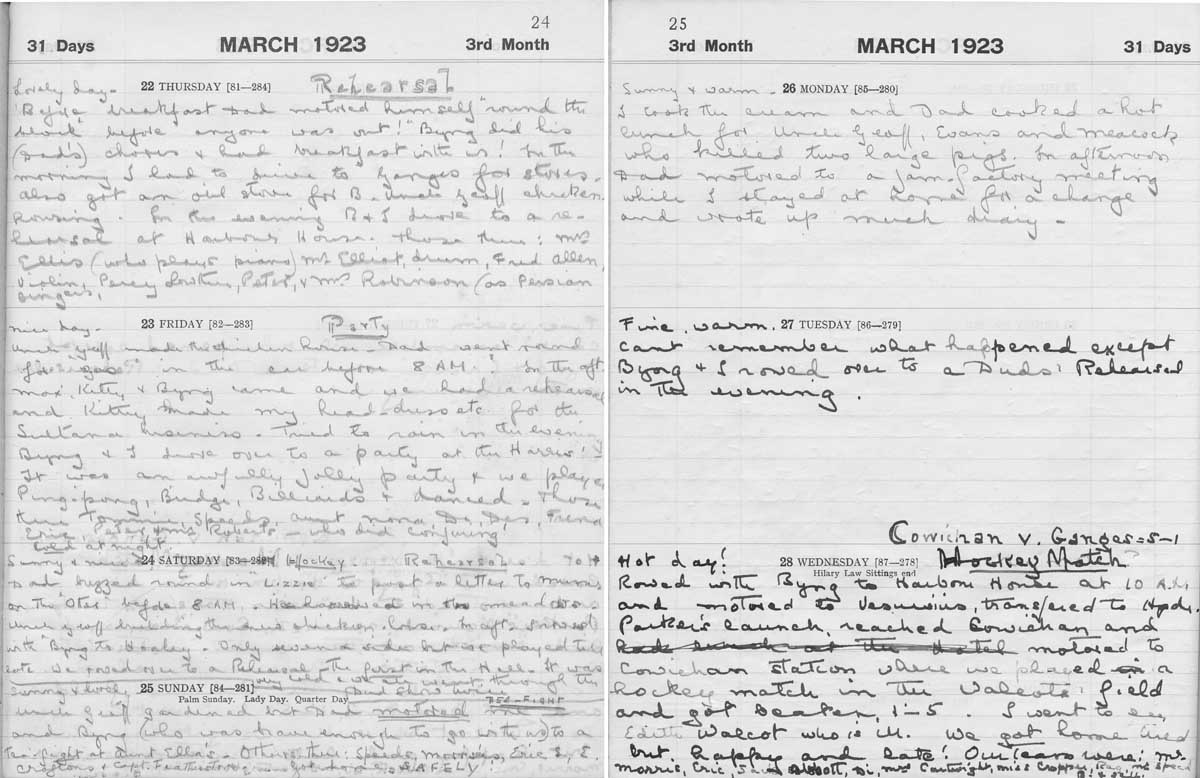 24
31 Days MARCH 1923 3rd Month
Lovely day. 22 THURSDAY [81—284] Rehearsal
Before breakfast Dad motored himself "round the
block before anyone was out!" Byng did his
(Dad's) chores & had breakfast with us! In the
morning I had to drive to Ganges for stores.
also got an oil stove for B. Uncle Geoff chicken
housing. In the evening B & I drove to a re-
hearsal at Harbour House. Those there: Mrs
Ellis (who plays piano) Mr Elliot, drum, Fred Allen,
violin, Percy Lowther, Peter, & Mrs Robinson (as Persian
singers,
nice day. 23 FRIDAY [82—283] Party
Uncle Geoff made the chicken house. Dad went round
for "gas" in the car before 8 AM. In the aft.
Max, Kitty & Byng came and we had a rehearsal
and Kitty made my head-dress etc for the
Sultana business. Tried to rain in the evening
Byng & I drove over to a party at the
It was an awfully jolly party & we played
Ping-pong, Bridge, Billiards & danced. Those
there Speeds, aunt nona, Dr, Des, Frena
Eric, Peter Roberts — who did conjuring
Cold at night
Sunny & nice 24 SATURDAY Hockey. Rehearsal
Dad buzzed round in "Lizzie" to post a letter to mums
on the "Otter" before 8 AM.
Uncle Geoff building the new chicken house. In aft. I rowed
with Byng to Hockey. Only seven a side but we played till
late. We rowed over to a Rehearsal — the first in the Hall. It was
very cold & we went through the
sunny & lively 25 SUNDAY [84—281] show twice
Palm Sunday. Lady Day. Quarter Day PED-FIGHT
Uncle Geoff gardened but Dad motored
and Byng (who was brave enough to go with us) to a
at Aunt Ella's. Others there: Speeds, Morrises, Eric S,
Croftons & Capt. Featherstone SAFELY!
25
3rd Month MARCH 1923 31 Days
Sunny & warm. 26 MONDAY [85—280]
I took the cream and Dad cooked a hot
lunch for Uncle Geoff, Evans and Meacock
who killed two large pigs. In afternoon
Dad motored to a Jam-factory meeting
while I stayed at home for a change
and wrote up much diary.
Fine, warm. 27 TUESDAY [86—279]
Can't remember what happened except
Byng & I rowed over to a Duds' Rehearsal
in the evening.
Cowichan v. Ganges = 5-1
Hot day! 28 WEDNESDAY [87—278] Hockey Match
Hilary Law Sittings end
Rowed with Byng to Harbour House at 10 A.M.
and motored to Vesuvius, transfered to Hyd.
Parker's launch, reached Cowichan and
had lunch at the Hotel motored to
Cowichan station where we played in a
hockey match in the Walcots' field
and got beaten, 1-5. I went to see
Edith Walcot who is ill. We got home tired
but happy and late! Our team were: Mr
Morris, Eric, Abbott, Di, Mrs Cartwright, Miss Copper,